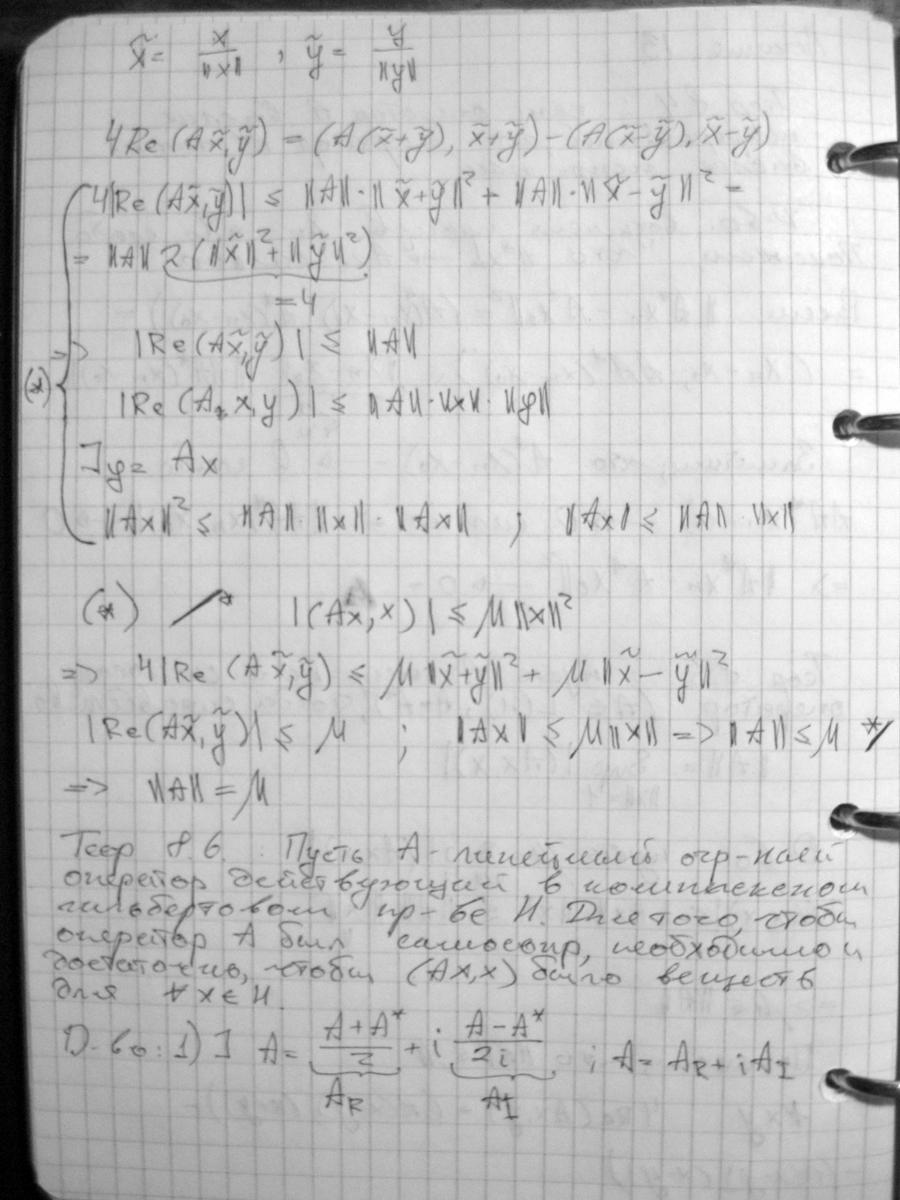 x̃ = x/‖x‖ , ỹ = y/‖y‖
4Re(Ax̃,ỹ) = (A(x̃+ỹ), x̃+ỹ) - (A(x̃-ỹ), x̃-ỹ)
4|Re(Ax̃,ỹ)| ≤ ‖A‖·‖x̃+ỹ‖² + ‖A‖·‖x̃-ỹ‖² =
= ‖A‖ 2(‖x̃‖²+‖ỹ‖²)
=4
(*) => |Re(Ax̃,ỹ)| ≤ ‖A‖
|Re(A x,y)| ≤ ‖A‖·‖x‖·‖y‖
] y = Ax
‖Ax‖² ≤ ‖A‖·‖x‖·‖Ax‖ ; ‖Ax‖ ≤ ‖A‖·‖x‖
(*) /* |(Ax,x)| ≤ M‖x‖²
=> 4|Re(Ax̃,ỹ) ≤ M‖x̃+ỹ‖² + M‖x̃-ỹ‖²
|Re(Ax̃,ỹ)| ≤ M ; ‖Ax‖ ≤ M‖x‖ => ‖A‖ ≤ M */
=> ‖A‖ = M
Теор 8.6. Пусть A - линейный огр-ный
оператор действующий в комплексном
гильбертовом пр-ве H. Для того, чтобы
оператор A был самосопр, необходимо и
достаточно, чтобы (Ax,x) было веществ
для ∀ x∈H.
Д-во: 1) ] A = (A+A*)/2 + i (A-A*)/2i ; A = A_R + iA_I
A_R A_I